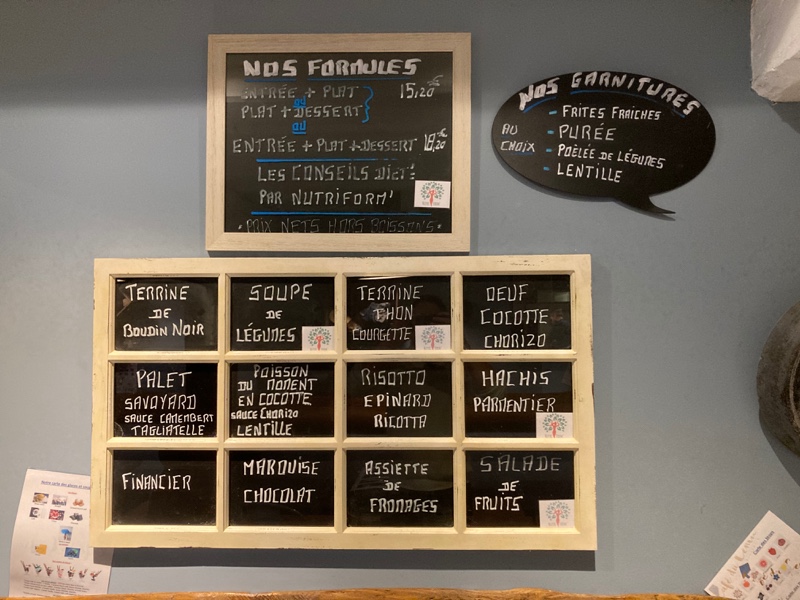 NOS FORMULES
ENTRÉE + PLAT 15,20€
ou
PLAT + DESSERT
ou
ENTRÉE + PLAT + DESSERT 18,20€
LES CONSEILS DIÉT'
PAR NUTRIFORM'
• PRIX NETS HORS BOISSONS •
NOS GARNITURES
AU CHOIX
- FRITES FRAICHES
- PURÉE
- POÊLÉE DE LÉGUMES
- LENTILLE
TERRINE
DE
BOUDIN NOIR
SOUPE
DE
LÉGUMES
TERRINE
THON
COURGETTE
OEUF
COCOTTE
CHORIZO
PALET
SAVOYARD
SAUCE CAMEMBERT
TAGLIATELLE
POISSON
DU MOMENT
EN COCOTTE
SAUCE CHORIZO
LENTILLE
RISOTTO
EPINARD
RICOTTA
HACHIS
PARMENTIER
FINANCIER
MARQUISE
CHOCOLAT
ASSIETTE
DE
FROMAGES
SALADE
DE
FRUITS